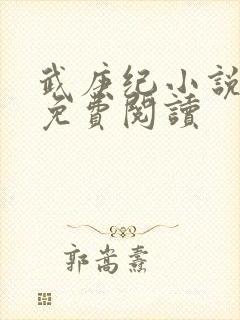 武庚纪小説
免費閱讀
郭嵩燾